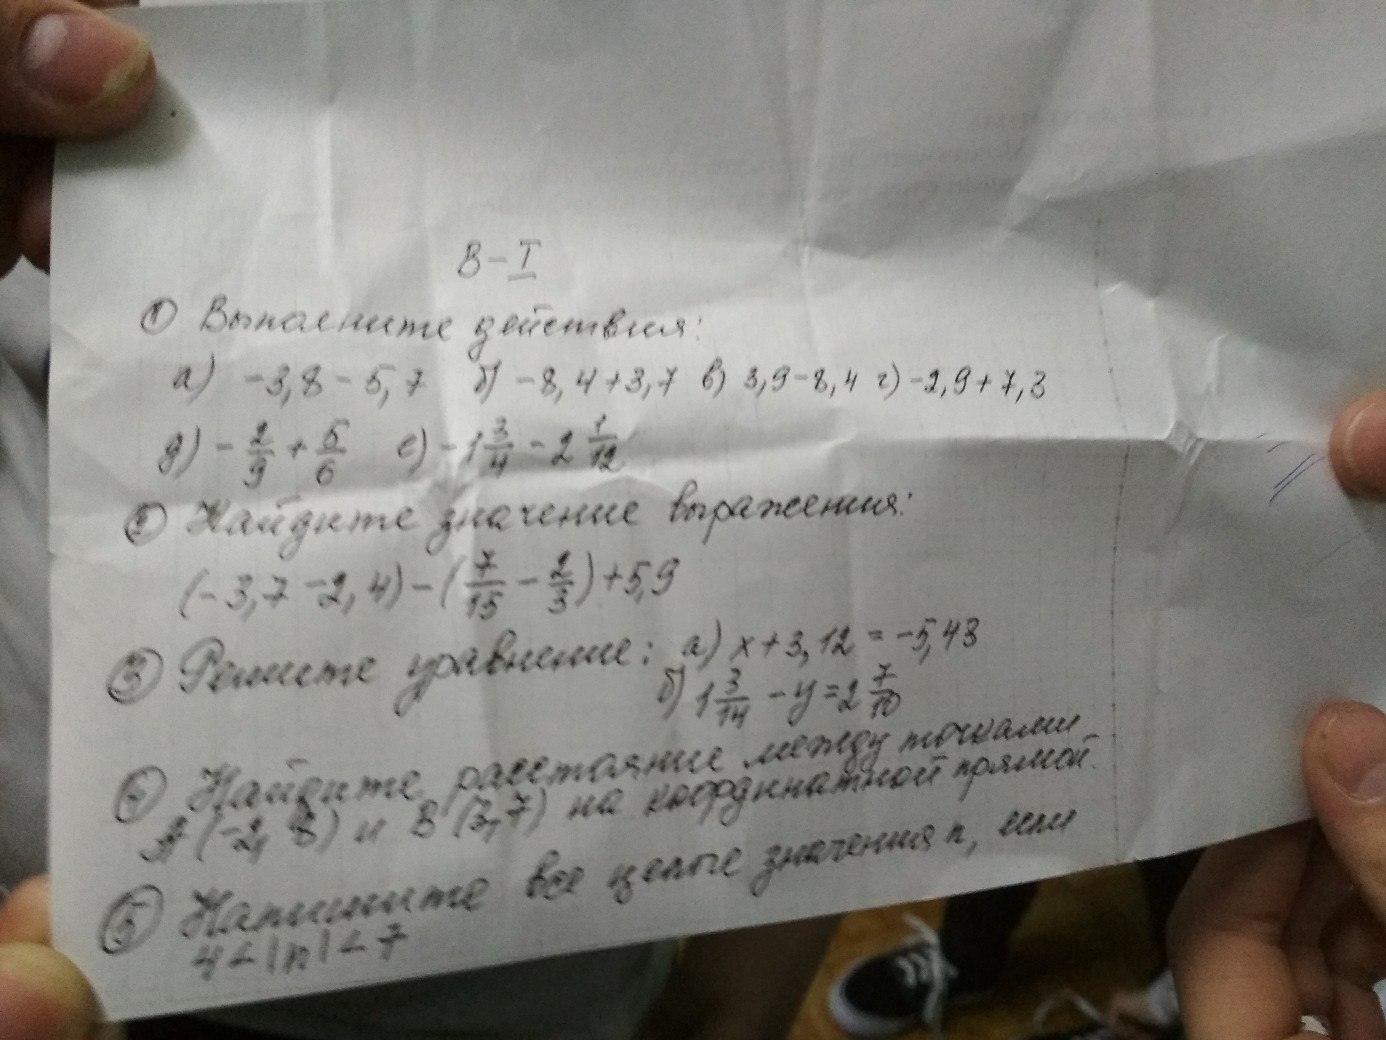 В-I
① Выполните действия:
а) -3,8 - 5,7 б) -8,4+3,7 в) 3,9-8,4 г) -2,9+7,3
д) -2/9 + 5/6 е) -1 3/4 - 2 1/12
② Найдите значение выражения:
(-3,7 -2,4) - (7/15 - 2/3) + 5,9
③ Решите уравнение: а) x+3,12 = -5,43
б) 1 3/14 - y = 2 7/10
④ Найдите расстояние между точками
А (-2,8) и В (3,7) на координатной прямой.
⑤ Напишите все целые значения n, если
4<|n|<7